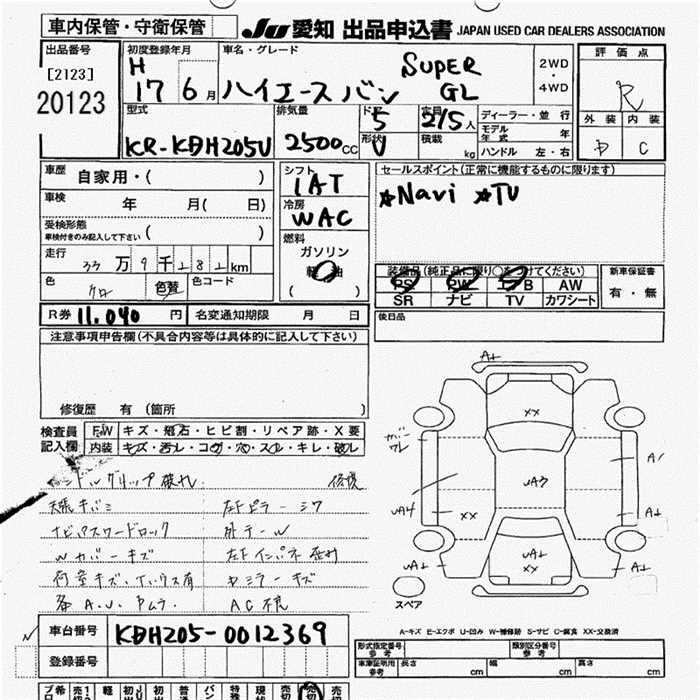 車内保管・守衛保管
JU 愛知 出品申込書 JAPAN USED CAR DEALERS ASSOCIATION
出品番号
[2123]
20123
初度登録年月
H
17 6月
車名・グレード
ハイエースバン SUPER GL
2WD
・
4WD
評価点
R
外装 内装
D C
型式
KR-KDH205V
排気量
2500cc
ドア
5
形状
V
定員
2/5人
積載
kg
ディーラー・並行
モデル年式 年
ハンドル 左・右
車歴
自家用・( )
車検
年 月( 日)
受検形態
車検付きのみ記入して下さい ( )
走行
33万9千282km
色
クロ
色替
色コード
シフト
IAT
冷房
WAC
燃料
ガソリン
軽油
( )
セールスポイント(正常に機能するものに限ります)
☆Navi ☆TV
装備品(純正品に限り○をつけてください)
PS PW エアB AW
SR ナビ TV カワシート
新車保証書
有・無
R券 11,040 円
名変通知期限 月 日
後日品
注意事項申告欄(不具合内容等は具体的に記入して下さい)
修復歴 有 (箇所 )
検査員
記入欄
F,W キズ・飛石・ヒビ割・リペア跡・X要
内装 キズ・汚レ・コゲ・穴・スレ・キレ・破レ
ハンドルグリップ破れ
天張キバミ 左Fピラーシワ
ナビパスワードロック 外テール
Wカバーキズ 左Fインパネ
荷室キズ・
各A.U.
ミラーキズ
AC不良
カバー
ワレ
A1
XX
UA3
A1
UA4
XX
A1
UA1
UA1
XX
UA1
スペア
A-キズ E-エクボ U-凹み W-補修跡 S-サビ C-腐食 XX-交換済
車台番号 KDH205-0012369
登録番号
形式指定番号
参考
類別区分番号
参考
車庫証明用
参考
長さ cm 幅 cm 高さ cm